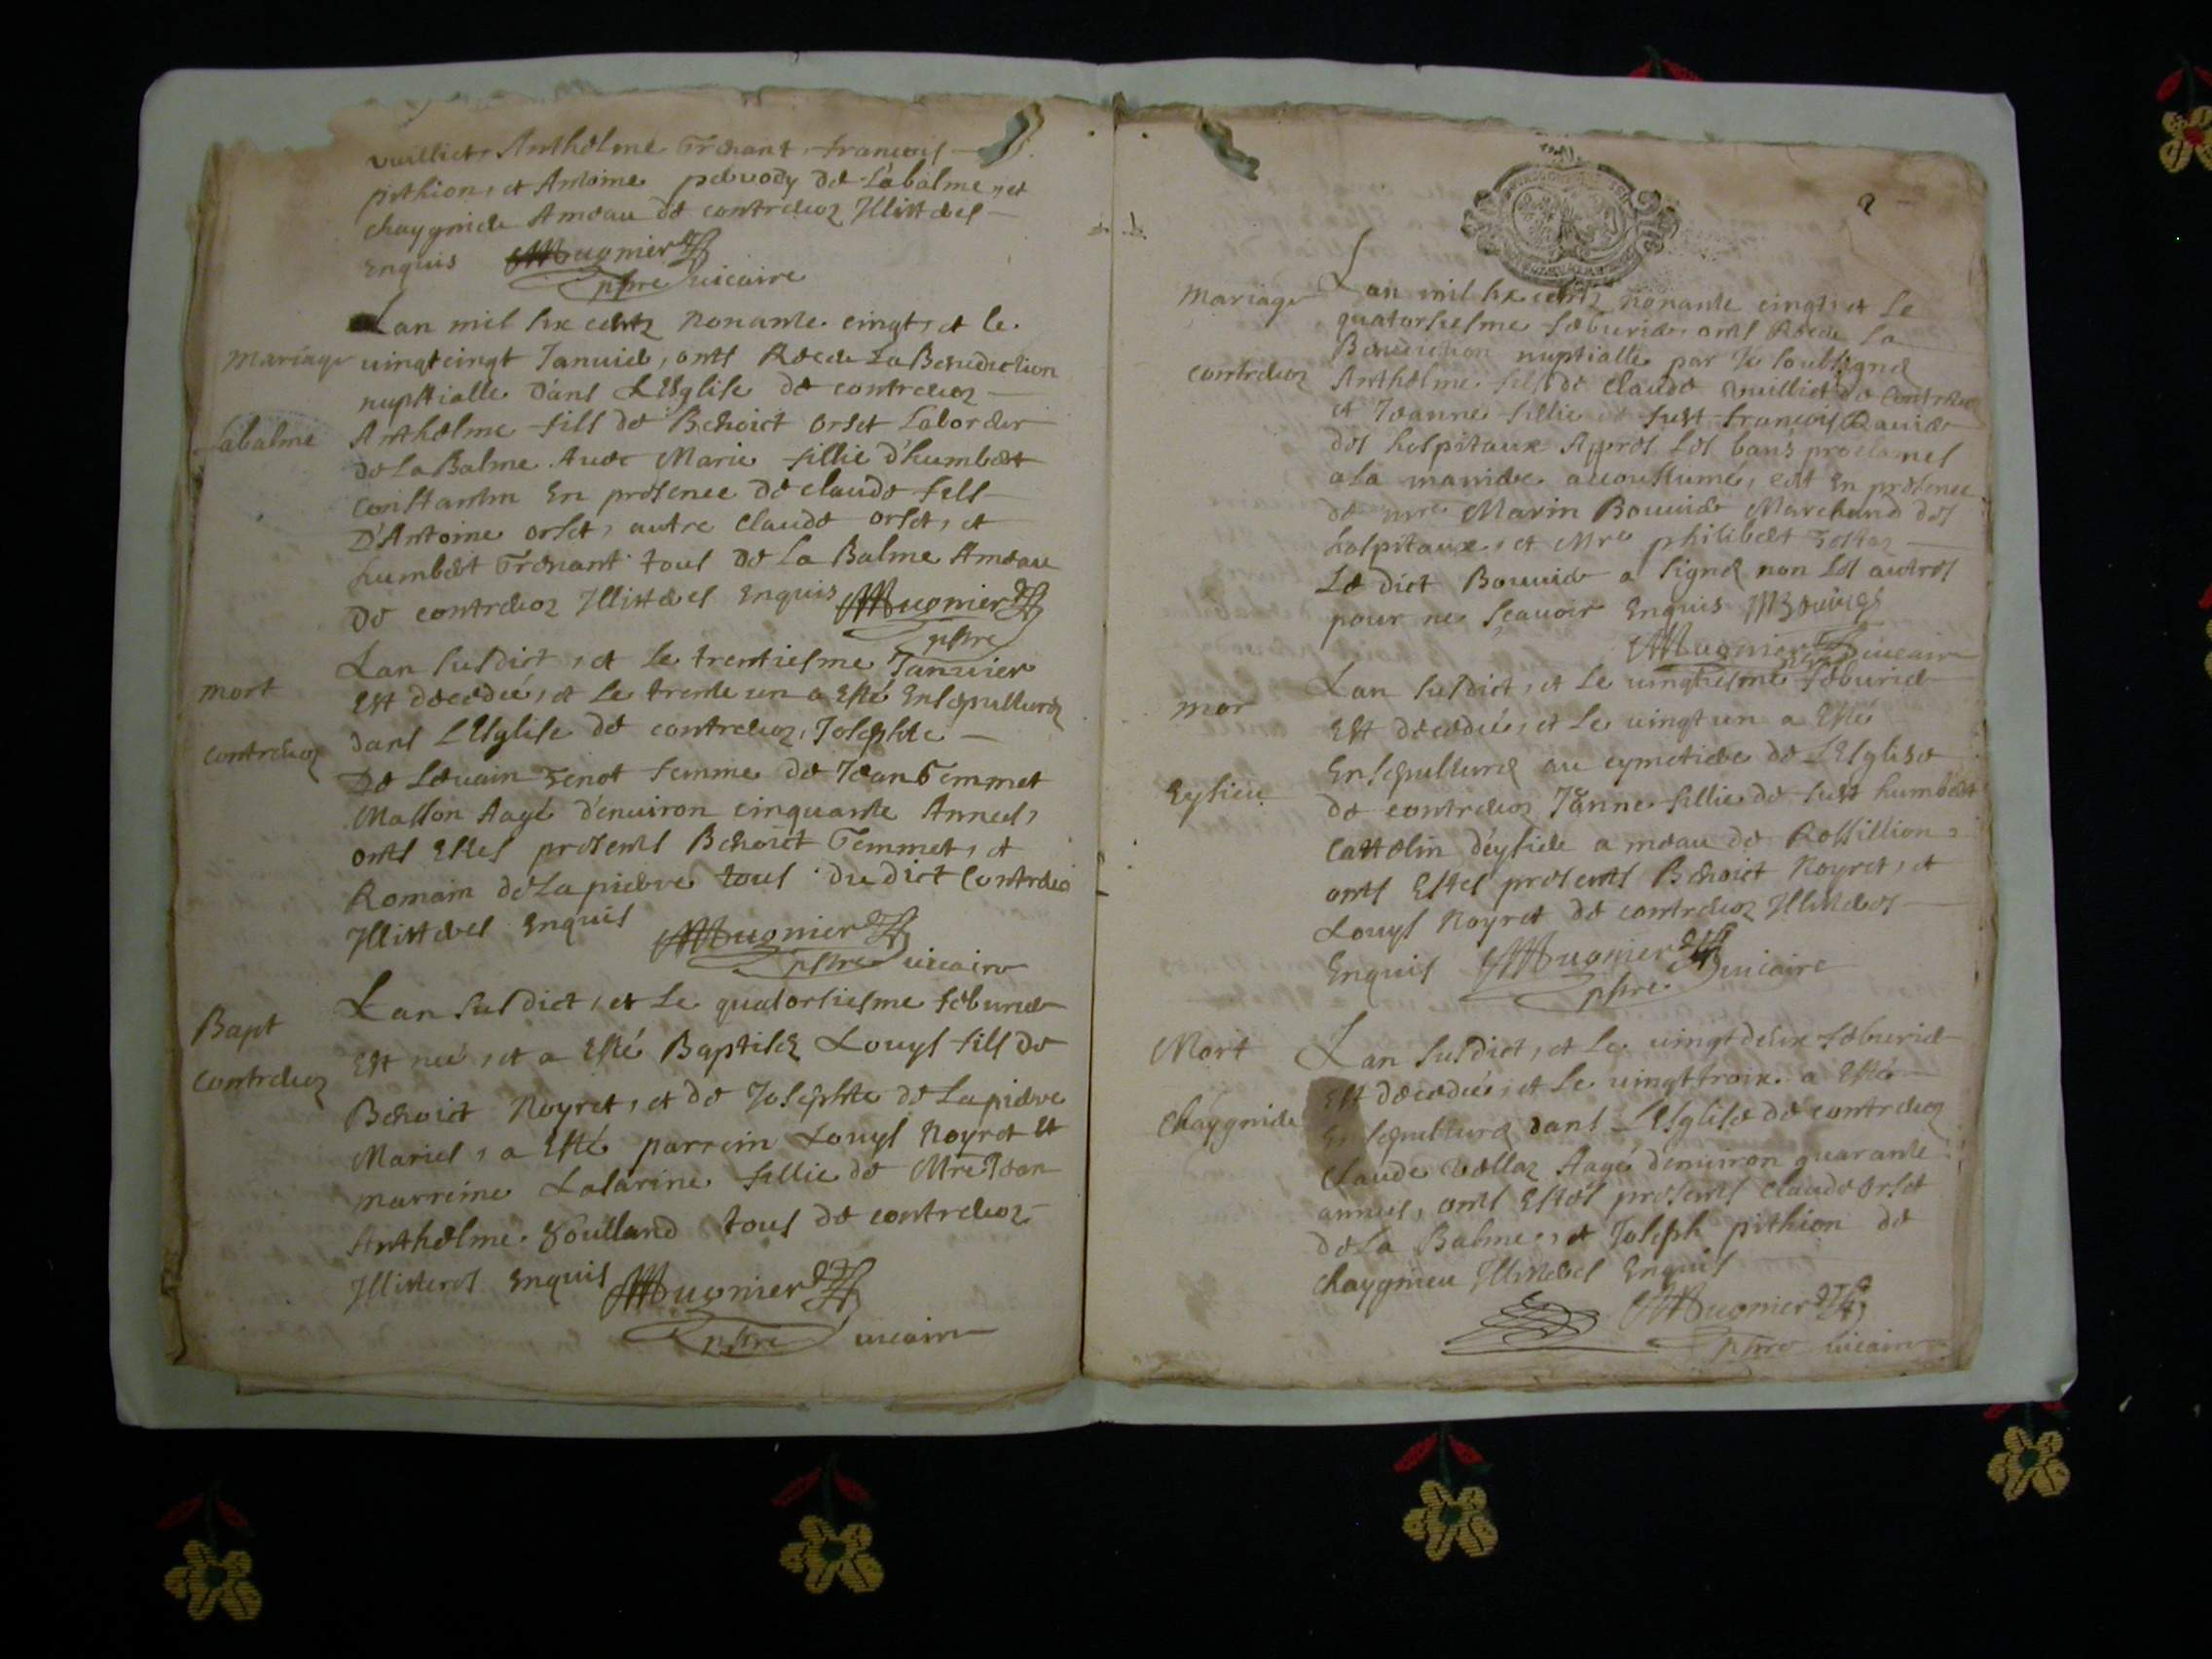 vuilliet, Anthelme Trenant, françois
pithion, et Antoine de Labalme, et
chaygnieu Ameau de contrevoz Illitteres
Enquis Mugnier
pstre vicaire
Lan mil six centz nonante cinqt, et le
mariage vingt cinqt Januier, onts Receu La Benediction
nupstialle dans LEsglise de contrevoz
Labalme Anthelme fils de Benoict orset Laborder
de La Balme Auec Marie fillie d'humbert
Constantin En presence de claude fils
D'Antoine orset, autre Claude orset, et
humbert Trenant tous de La Balme Ameau
De contrevoz Illitteres Enquis Mugnier
pstre
Lan susdict, et le trentiesme Januier
mort Est decedeé, et le trente un a Esté Ensepulturé
dans LEsglise de contrevoz, Josephte
contrevoz De Femme de Jean Temmet
Masson Aagé d'enuiron cinquante Annees,
onts Estes presents Benoict Temmet, et
Romain de Lapierre tous du dict Contrevoz
Illitteres Enquis Mugnier
pstre vicaire
Lan susdict, et Le quatorsiesme feburier
Bapt Est neé, et a Esté Baptisé Louys fils de
Contrevoz Benoict Noyret, et de Josephte de Lapierre
Mariés, a Esté parrein Louys Noyret et
marreine fillie de Mre Jean
Anthelme tous de contrevoz
Illitteres Enquis Mugnier
pstre vicaire
2
Mariage Lan mil six centz nonante cinqt, et Le
quatorsiesme feburier, onts Receu La
Benediction nuptialle par Je soussigné
contrevoz Anthelme fils de claude vuilliet de Contrevoz
et Jeanne fillie de fust françois
des hospitaux Appres Les bans proclames
a La maniere accoustumé, en presence
de mre Marin Bouuier Marchand des
hospitaux, et Mre philibert
Le dict Bouuier a signé non Les autres
pour ne sçauoir Enquis MBouuier
Mugnier pstre vicaire
Lan susdict, et Le vingtiesme feburier
mor Est decedeé, et Le vingt un a Esté
Ensepulturé au cymetiere de LEsglise
Eylieu de contrevoz Janne fillie de fust humbert
Cattelin ameau de Rossillion,
onts Estes presents Benoict Noyret, et
Louys Noyret de contrevoz Illitteres
Enquis Mugnier
pstre vicaire
Mort Lan susdict, et Le vingt deux feburier
Est decedeé, et Le vingt troix a Esté
Chaygnieu Ensepulturé dans LEsglise de contrevoz
Claude Aagé d'enuiron quarante
annees, onts Estes presents claude orset
de La Balme, et Joseph pithion de
chaygnieu Illitteres Enquis
Mugnier
pstre vicaire